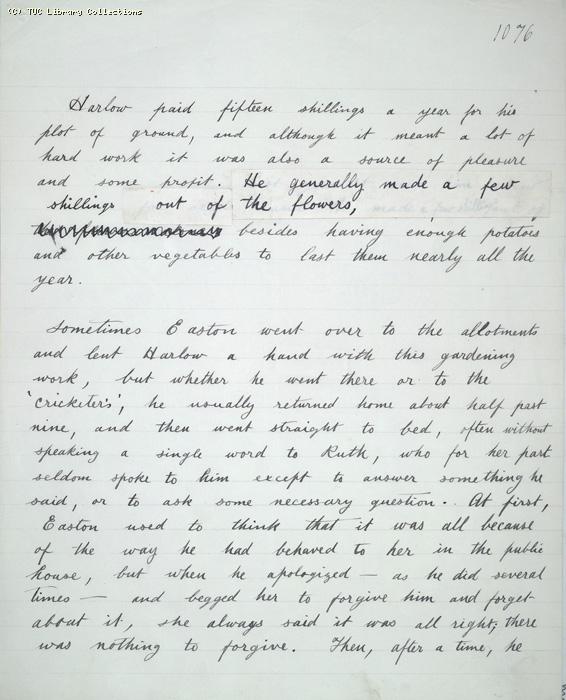 (C) TUC Library Collections
1076
Harlow paid fifteen shillings a year for his
plot of ground, and although it meant a lot of
hard work it was also a source of pleasure
and some profit. He generally made a few
shillings out of the flowers,
besides having enough potatoes
and other vegetables to last them nearly all the
year.
Sometimes Easton went over to the allotments
and lent Harlow a hand with this gardening
work, but whether he went there or to the
'Cricketer's', he usually returned home about half past
nine, and then went straight to bed, often without
speaking a single word to Ruth, who for her part
seldom spoke to him except to answer something he
said, or to ask some necessary question. At first,
Easton used to think that it was all because
of the way he had behaved to her in the public
house, but when he apologized — as he did several
times — and begged her to forgive him and forget
about it, she always said it was all right; there
was nothing to forgive. Then, after a time, he